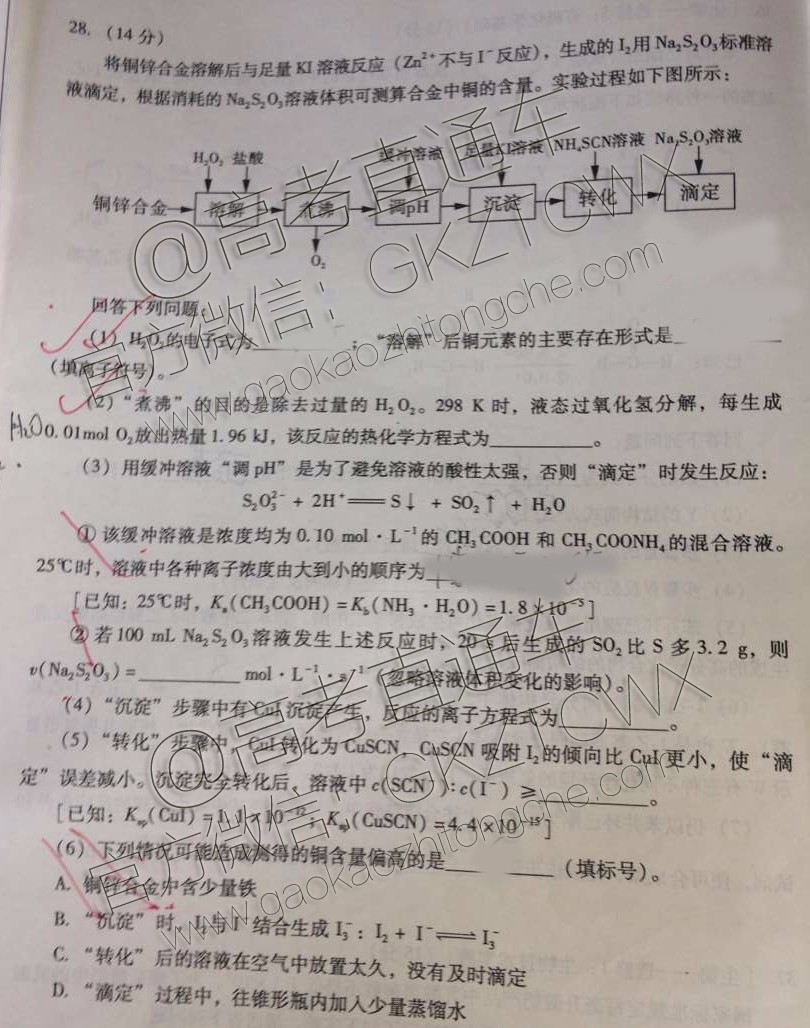 28. (14分)
将铜锌合金溶解后与足量 KI 溶液反应（Zn²⁺不与 I⁻反应），生成的 I₂用 Na₂S₂O₃标准溶
液滴定，根据消耗的 Na₂S₂O₃溶液体积可测算合金中铜的含量。实验过程如下图所示：
H₂O₂ 盐酸 缓冲溶液 足量KI溶液 NH₄SCN溶液 Na₂S₂O₃溶液
铜锌合金 溶解 煮沸 调pH 沉淀 转化 滴定
O₂
回答下列问题：
(1) H₂O₂的电子式为______；“溶解”后铜元素的主要存在形式是______
(填离子符号)。
(2)“煮沸”的目的是除去过量的 H₂O₂。298 K 时，液态过氧化氢分解，每生成
H₂O
0.01mol O₂放出热量 1.96 kJ，该反应的热化学方程式为______。
(3) 用缓冲溶液“调 pH”是为了避免溶液的酸性太强，否则“滴定”时发生反应：
S₂O₃²⁻ + 2H⁺═══S↓ + SO₂↑ + H₂O
① 该缓冲溶液是浓度均为 0.10 mol·L⁻¹的 CH₃COOH 和 CH₃COONH₄的混合溶液。
25℃时，溶液中各种离子浓度由大到小的顺序为
[已知：25℃时，Kₐ(CH₃COOH) = K_b(NH₃·H₂O) = 1.8×10⁻⁵]
② 若100 mL Na₂S₂O₃溶液发生上述反应时，20 s 后生成的 SO₂ 比 S 多 3.2 g，则
v(Na₂S₂O₃) = ______ mol·L⁻¹·s⁻¹（忽略溶液体积变化的影响）。
(4)“沉淀”步骤中有 CuI 沉淀产生，反应的离子方程式为______。
(5)“转化”步骤中，CuI 转化为 CuSCN，CuSCN 吸附 I₂的倾向比 CuI 更小，使“滴
定”误差减小。沉淀完全转化后，溶液中 c(SCN⁻):c(I⁻) ≥______。
[已知：Kₛₚ(CuI) = 1.1×10⁻¹²；Kₛₚ(CuSCN) = 4.4×10⁻¹⁵]
(6) 下列情况可能造成测得的铜含量偏高的是______（填标号）。
A. 铜锌合金中含少量铁
B. “沉淀”时，I₂与I⁻结合生成 I₃⁻：I₂ + I⁻⇌I₃⁻
C. “转化”后的溶液在空气中放置太久，没有及时滴定
D. “滴定”过程中，往锥形瓶内加入少量蒸馏水
@高考直通车
官方微信：GKZTCWX
www.gaokaozhitongche.com
@高考直通车
官方微信：GKZTCWX
www.gaokaozhitongche.com